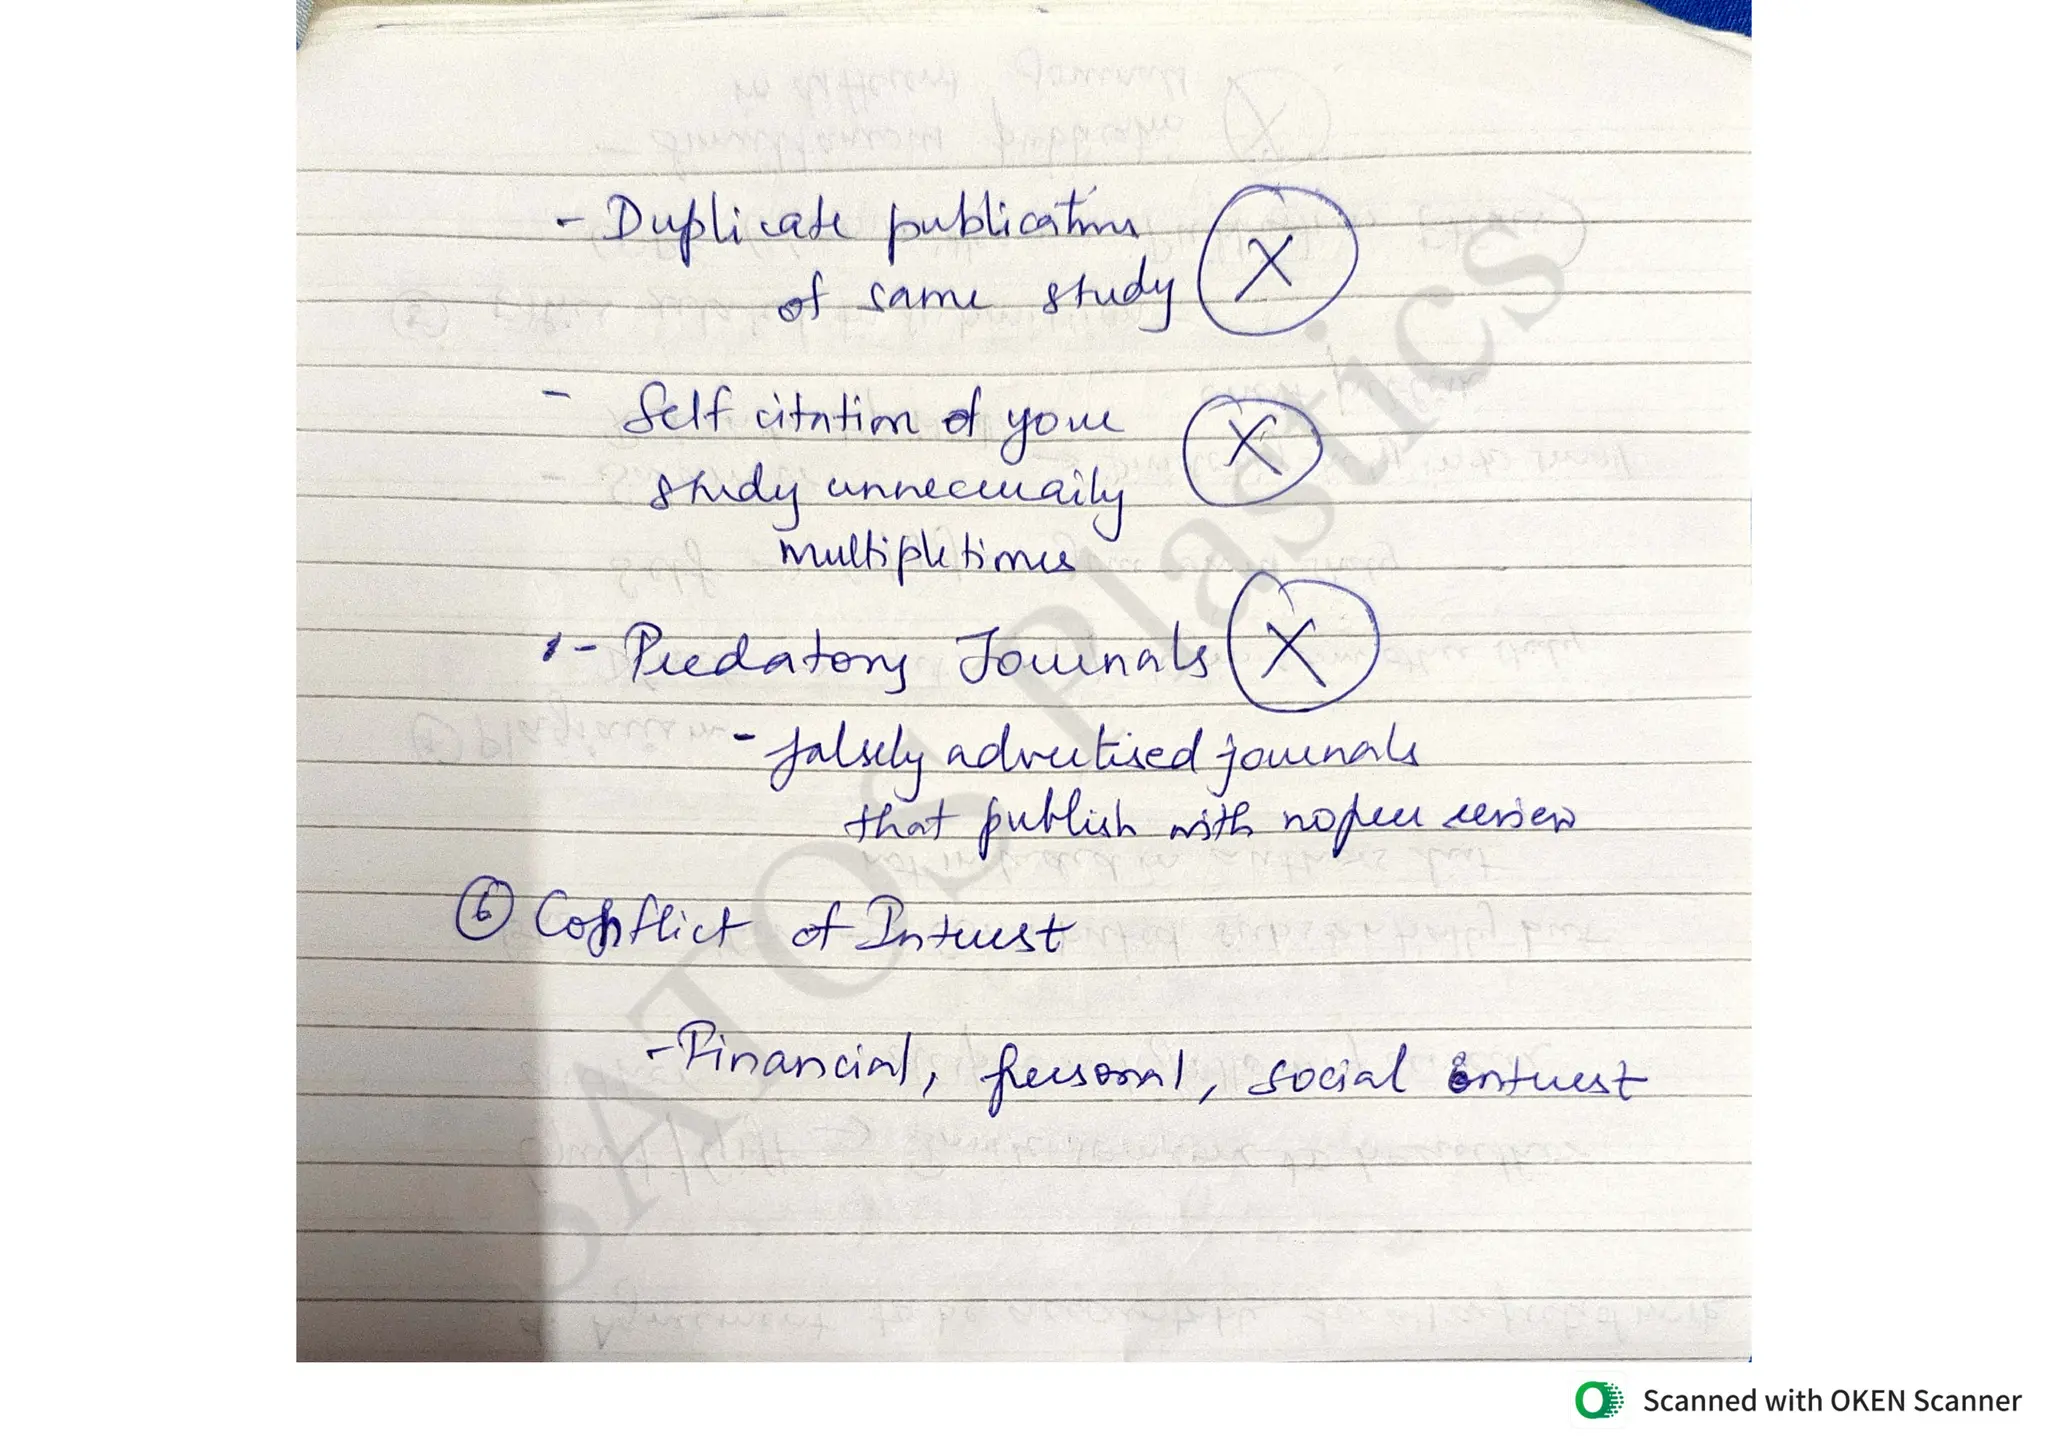 - Duplicate publications
of same study X
- Self citation of your
study unnecessarily X
multiple times
- Predatory Journals X
- falsely advertised journals
that publish with no peer review
6 Conflict of Interest
- Financial, personal, social interest
SATOS Plastics
Scanned with OKEN Scanner